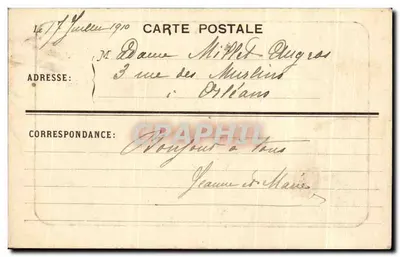 Le 17 Juillet 1910
CARTE POSTALE
Madame Millet Augras
ADRESSE:
3 rue des Murlins
à Orléans
CORRESPONDANCE:
Bonjour à tous
Jeanne et Marie